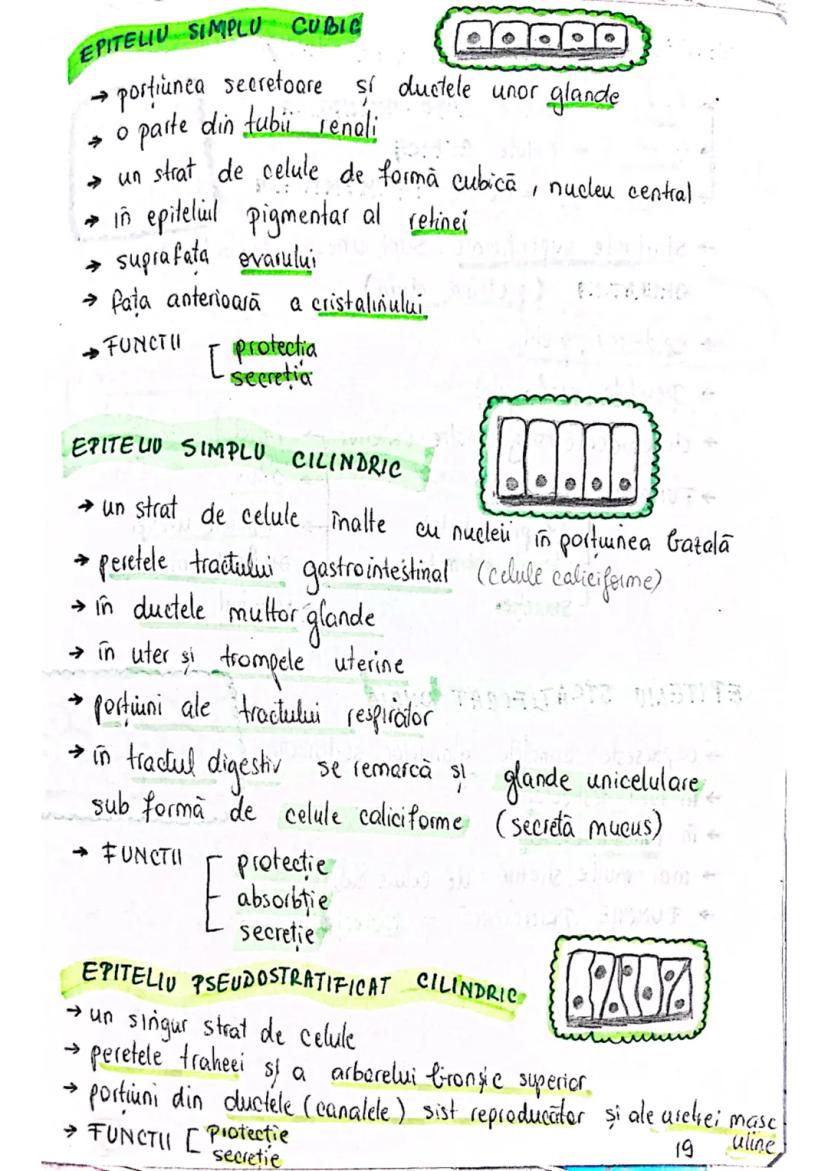 EPITELIU SIMPLU CUBIC
→ porțiunea secretoare si ductele unor glande
→ o parte din tubii renali
→ un strat de celule de formă cubică, nucleu central
→ în epiteliul pigmentar al retinei
→ suprafața ovarului
→ fața anterioară a cristalinului
→ FUNCTII [ protectia
secreția
EPITELIU SIMPLU CILINDRIC
→ un strat de celule înalte cu nucleii în porțiunea bazală
→ peretele tractului gastrointestinal (celule caliciforme)
→ în ductele multor glande
→ în uter și trompele uterine
→ porțiuni ale tractului respirator
→ în tractul digestiv se remarcă și glande unicelulare
sub formă de celule caliciforme (secretă mucus)
→ FUNCTII [ protecție
absorbție
secreție
EPITELIU PSEUDOSTRATIFICAT CILINDRIC
→ un singur strat de celule
→ peretele traheei și a arborelui bronșic superior
→ porțiuni din ductele (canalele) sist reproducător și ale uretrei masc
uline
→ FUNCTII [ Protectie
secreție
19